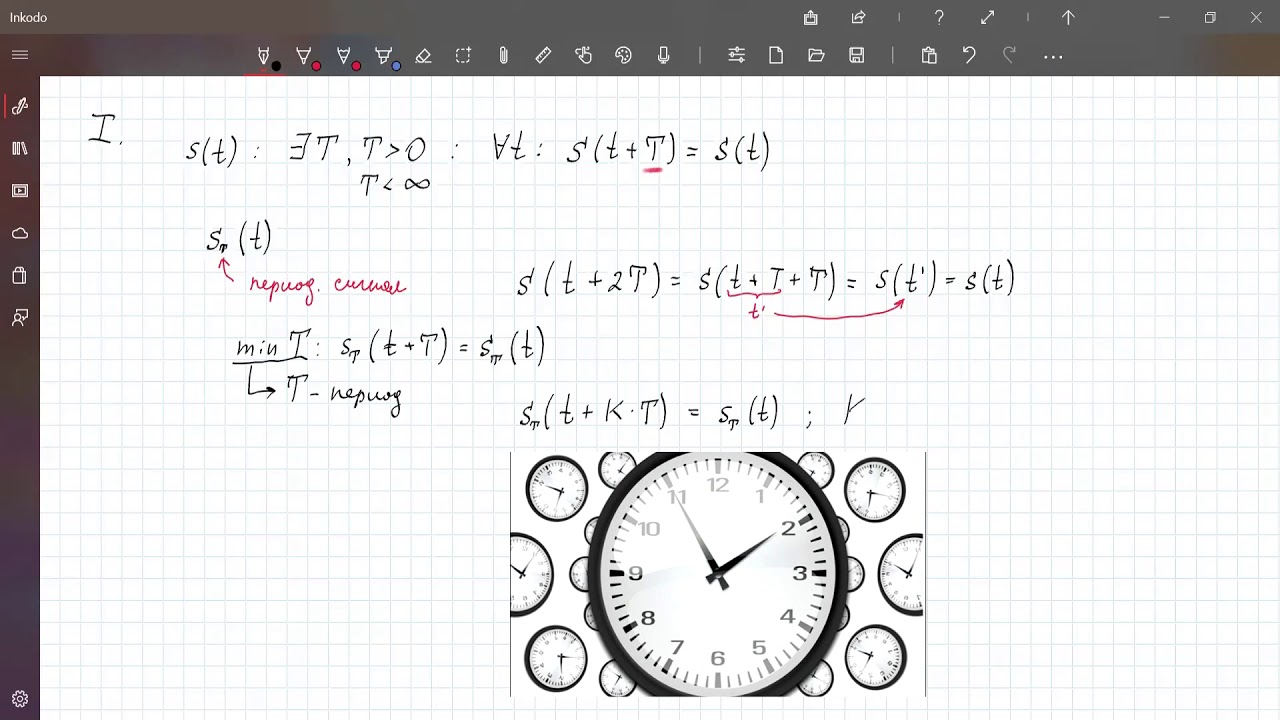 Inkodo
I.
s(t) : ∃T, T>0 : ∀t : s(t+T) = s(t)
T < ∞
s_T(t)
период. сигнал
s(t+2T) = s(t+T+T) = s(t') = s(t)
t'
min T : s_T(t+T) = s_T(t)
T - период
s_T(t+K·T) = s_T(t) ;
12
11 1
10 2
9 3
8 4
7 5
6